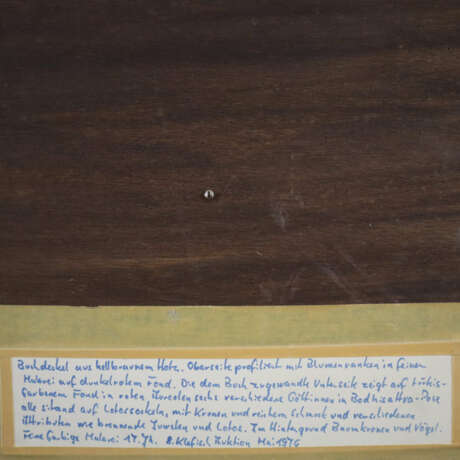 Buchdeckel aus hellbraunem Holz. Oberseite profiliert mit Blumenranken in feiner
Malerei auf dunkelrotem Fond. Die dem Buch zugewandte Unterseite zeigt auf türkis-
farbenem Fond in roten Aureolen sechs verschiedene Göttinnen in Bodhisattva-Pose
alle sitzend auf Lotossockeln, mit Kronen und reichem Schmuck und verschiedenen
Attributen wie brennende Juwelen und Lotos. Im Hintergrund Baumkronen und Vögel.
Feine farbige Malerei 17. Jh. Klefisch Auktion Mai 1976